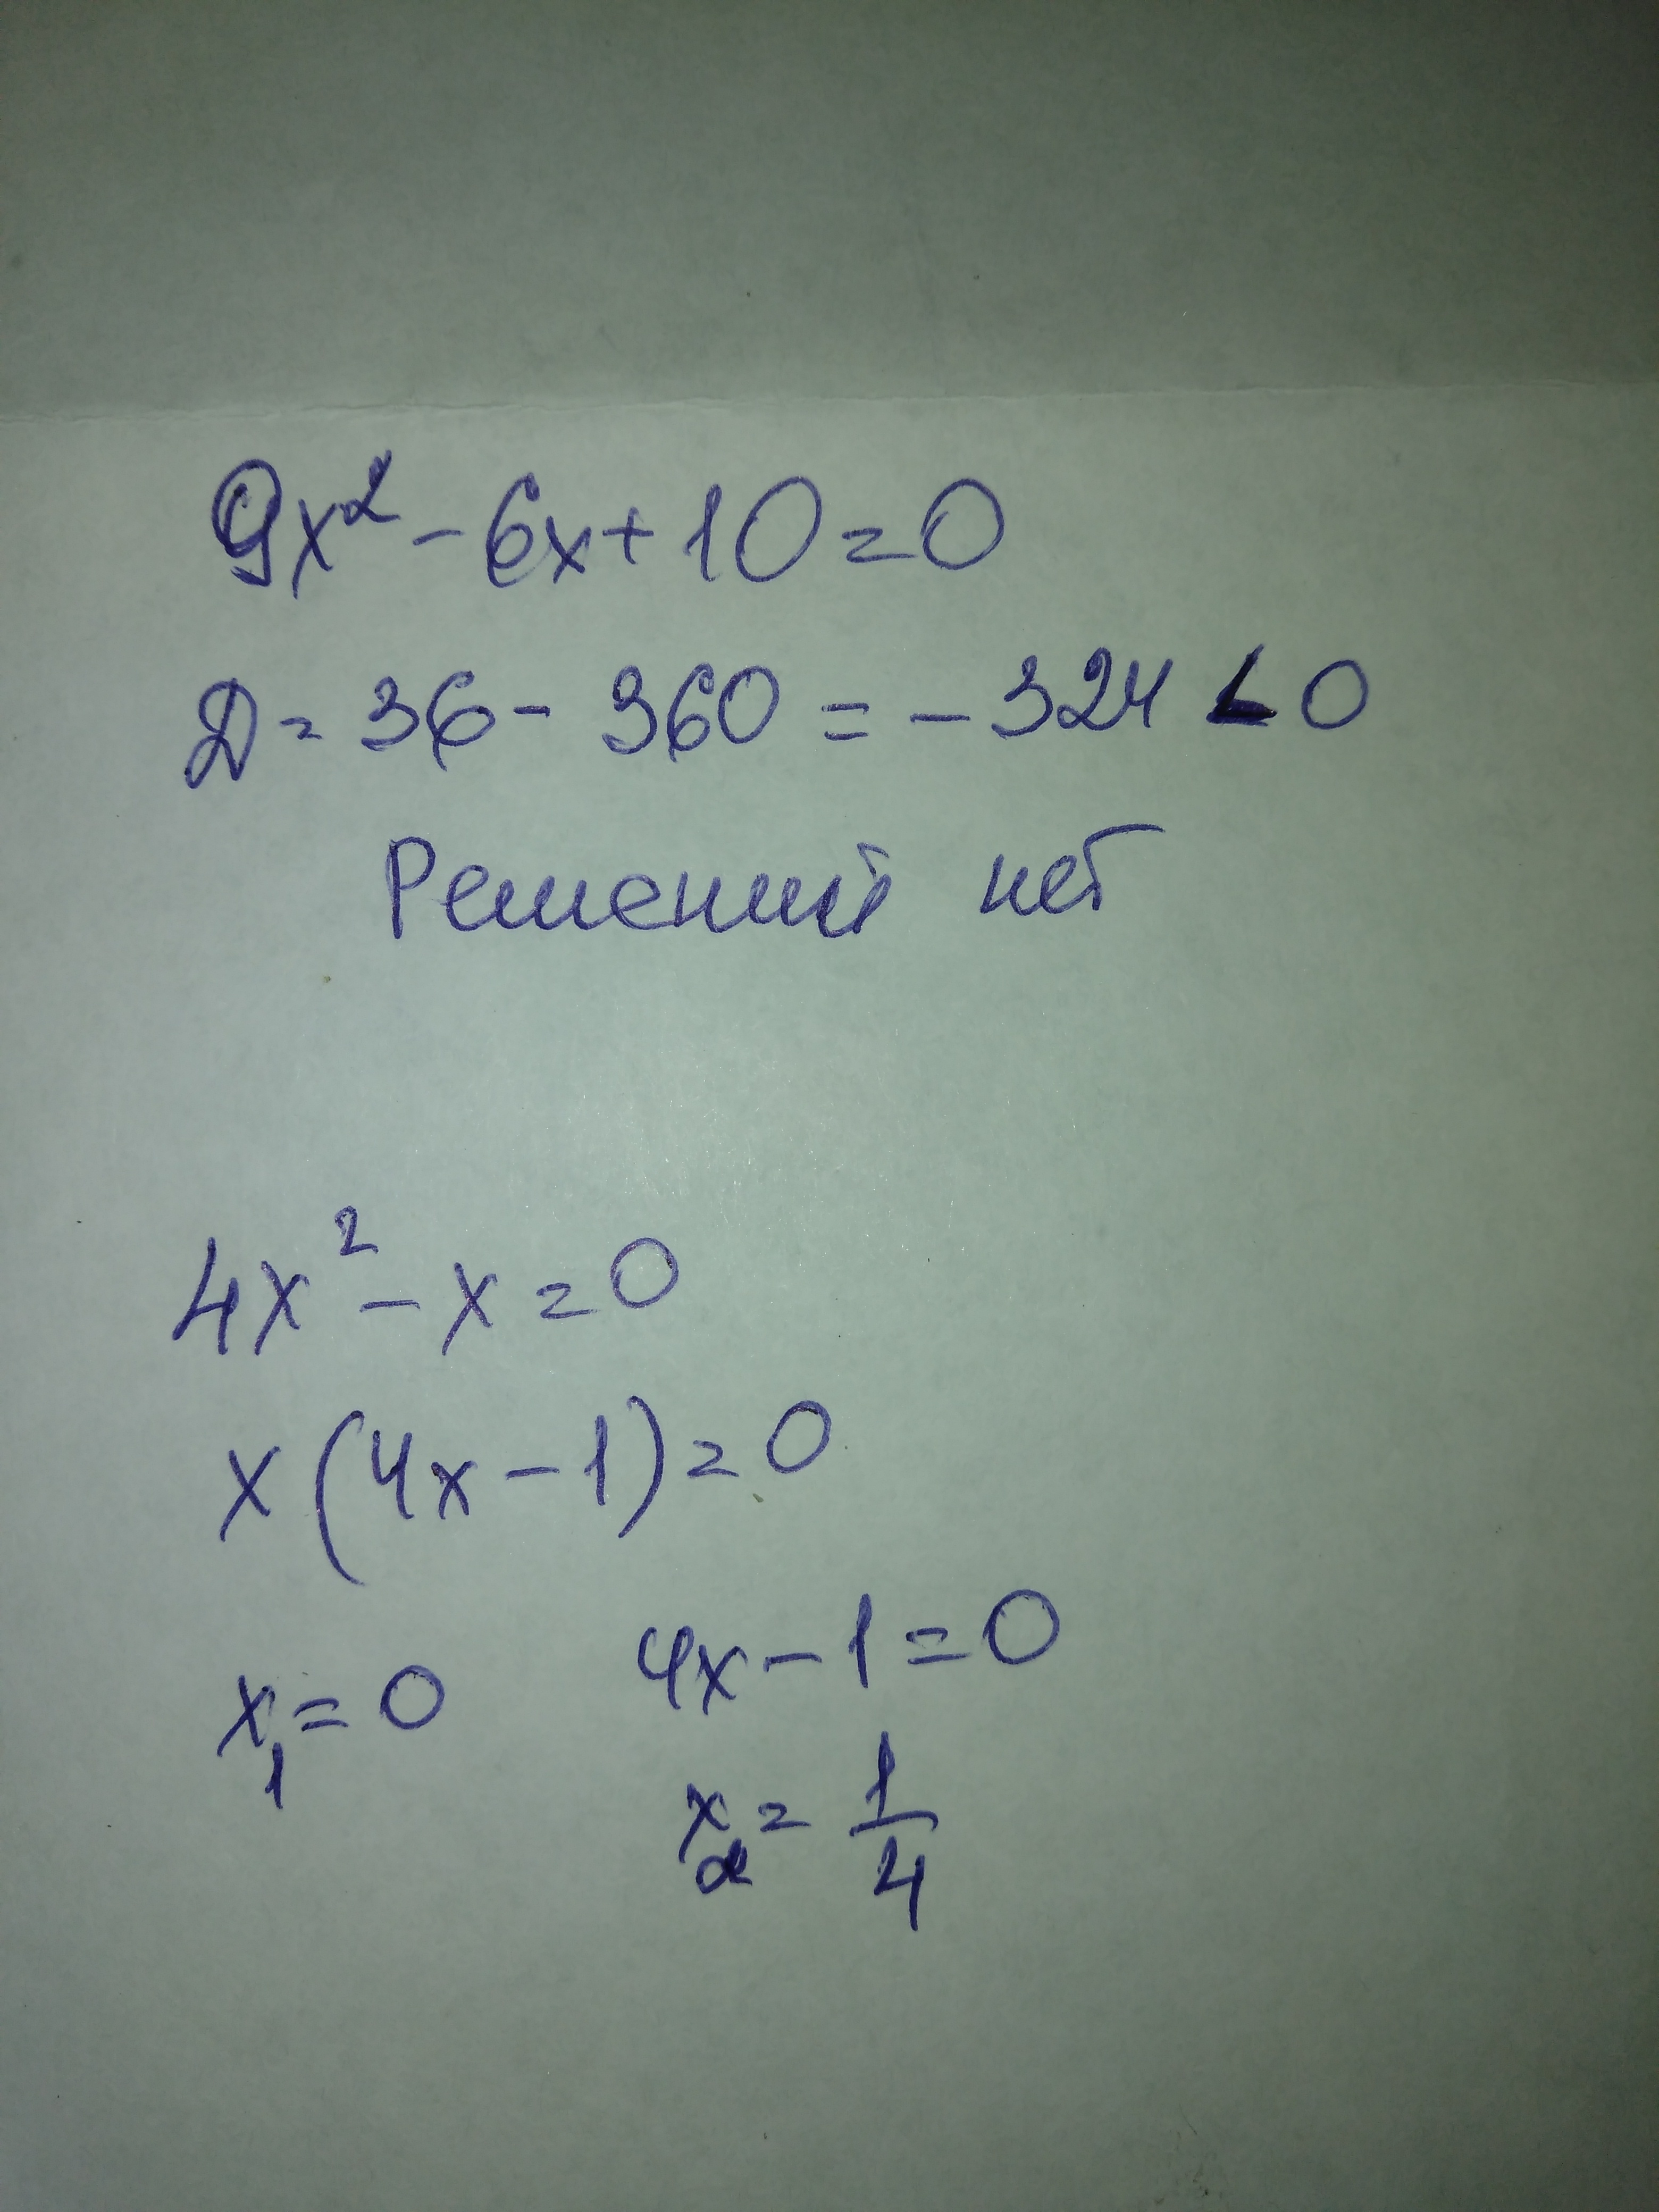 9x² - 6x + 10 = 0
D = 36 - 360 = - 324 < 0
Решений нет
4x² - x = 0
x (4x - 1) = 0
x₁ = 0    4x - 1 = 0
x₂ = 1/4